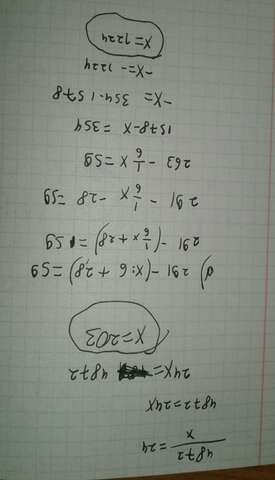 4872/x = 24
4872=24x
24x= 4872
x=203
д) 291 -(x:6 + 28) = 59
291 -(1/6 x + 28)= 59
291 - 1/6 x - 28 = 59
263 - 1/6 x = 59
1578-x = 354
-x= 354-1578
-x=-1224
x=1224